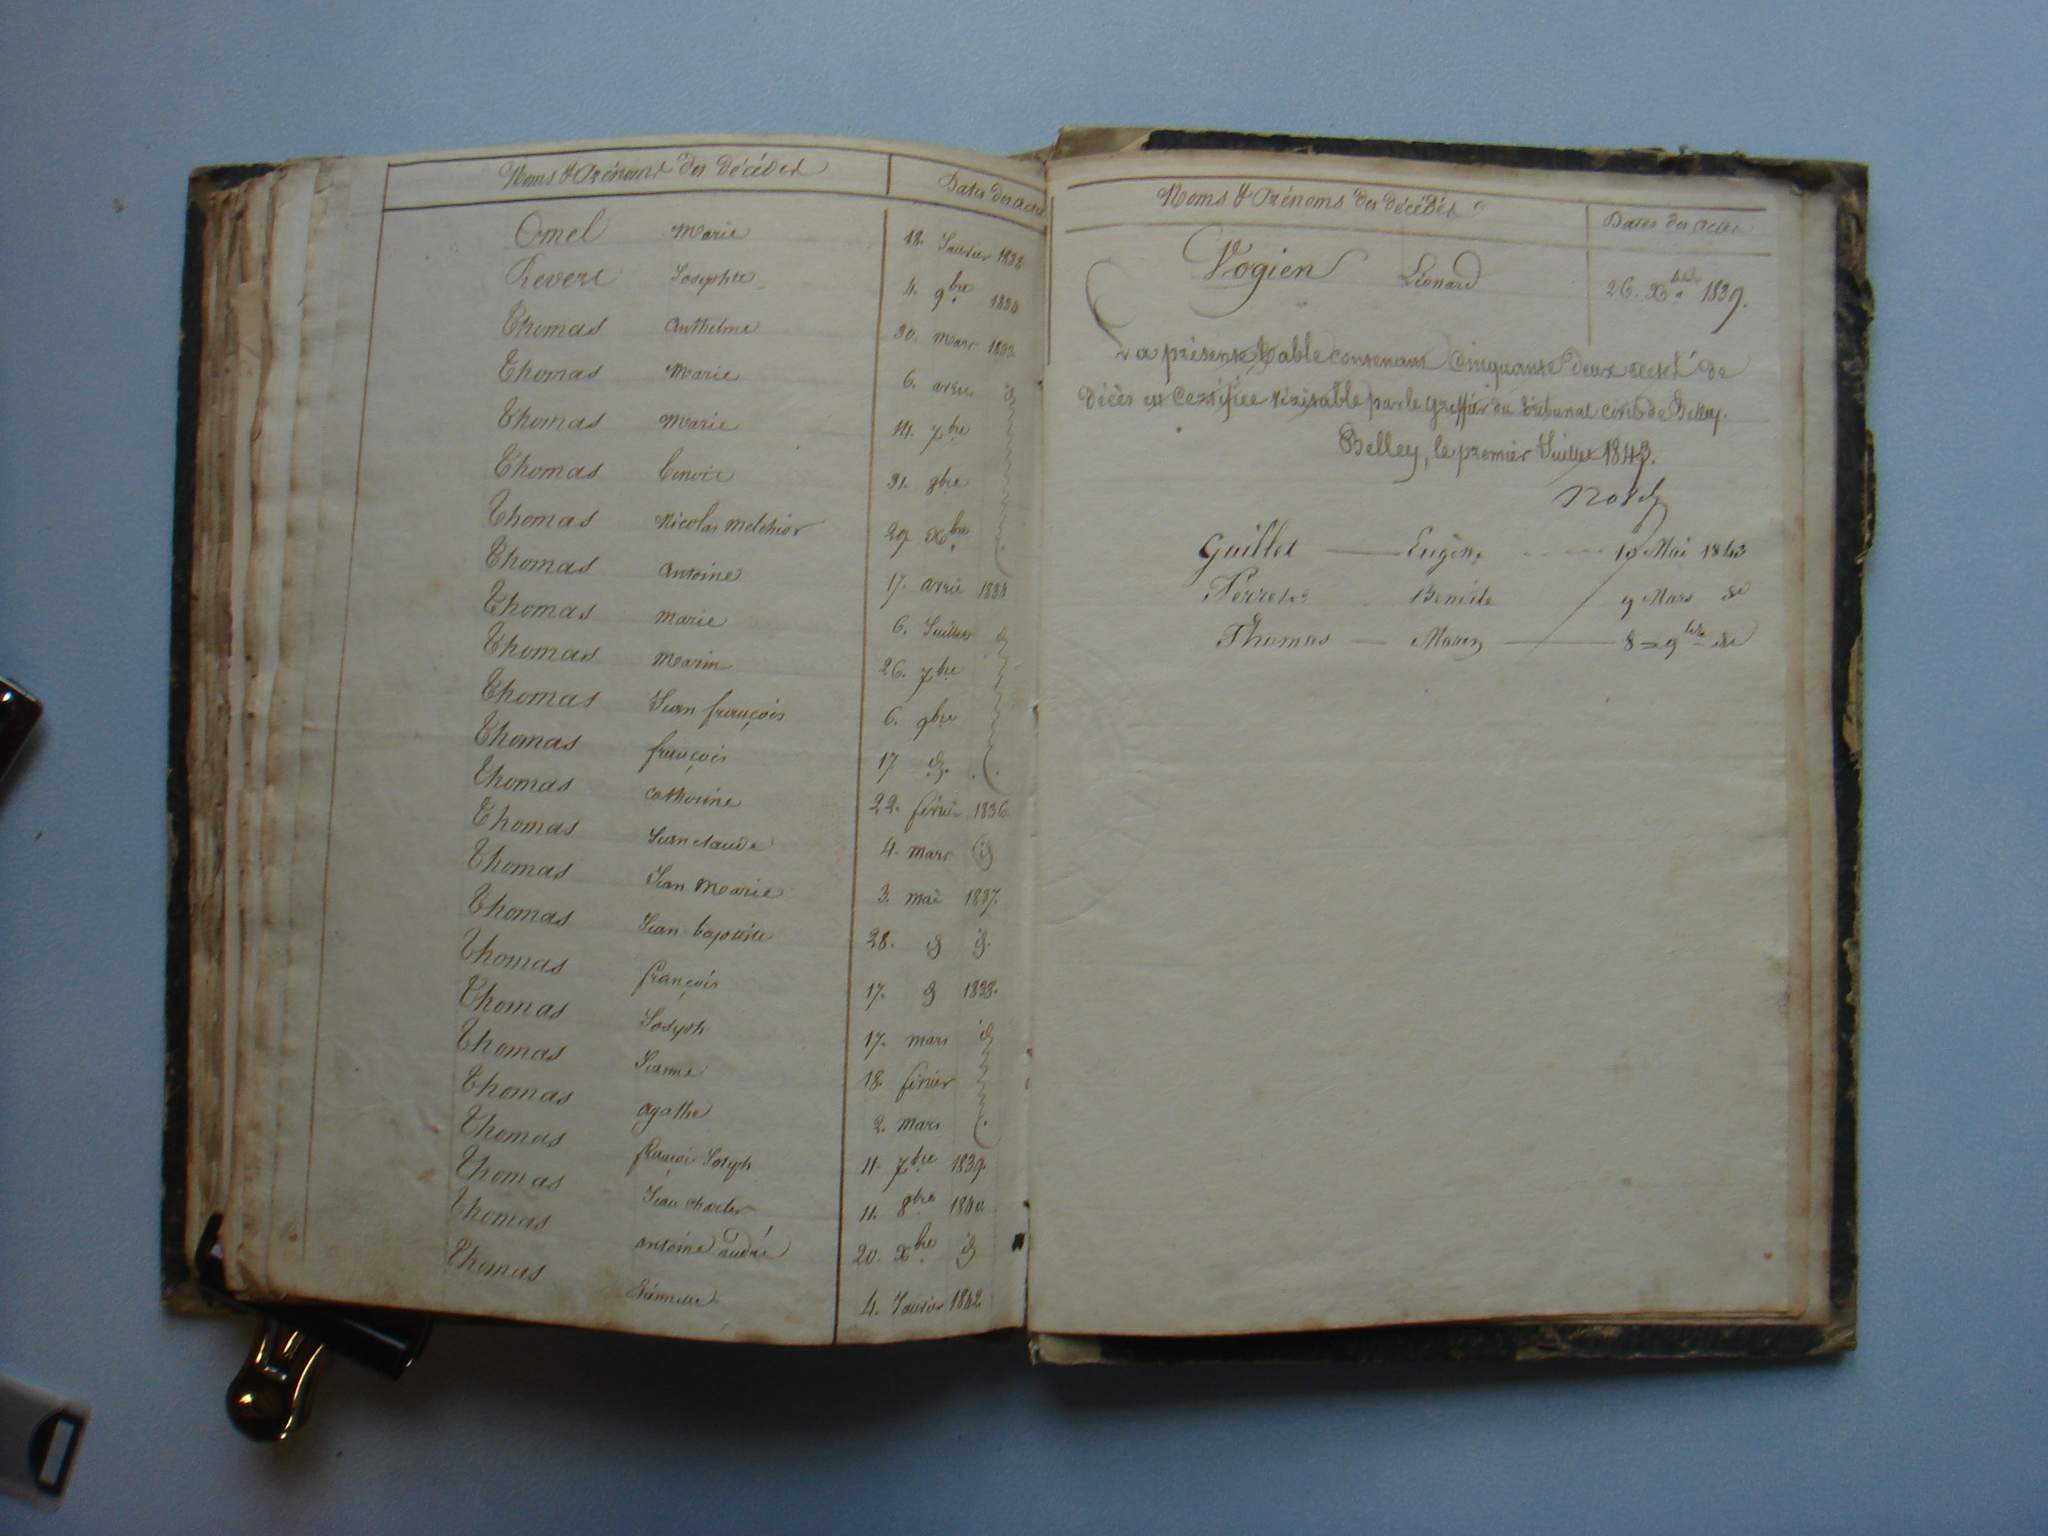 Noms & Prénoms des décédés Dates des actes
Omel Marie 18. Janvier 1838
Revert Josephte 4. 9bre 1834
Thomas Anthelme 30. Mars 1833
Thomas Marie 6. avril id
Thomas Marie 14. 7bre
Thomas Benoit 31. 8bre
Thomas Nicolas Melchior 29. Xbre
Thomas Antoine 17. avril
Thomas Marie 6. Juillet id
Thomas Marin 26. 7bre
Thomas Jean françois 6. 9bre
Thomas françois 17 id.
Thomas Catherine 22. février 1836
Thomas Jean claude 4. mars id
Thomas Jean Marie 3. mai 1837.
Thomas Jean baptiste 28. id id.
Thomas françois 17. id 1838.
Thomas Joseph 17. mars id
Thomas Jeanne 18. février
Thomas agathe 2. mars
Thomas françois Joseph 11. 7bre 1839.
Thomas Jean charles 11. 8bre 1840
Thomas antoine andré 20. Xbre id
Thomas 4. Janvier 1842
Noms & Prénoms des décédés Dates des actes
Vogien Léonard 26. Xbre 1839.
La présente Table contenant Cinquante deux actes de
décès est Certifiée véritable par le greffier du tribunal civil de Belley.
Belley, le premier Juillet 1843.
Guillet Eugène 10 Mai 1843
Perret Benoite 9 Mars de
Thomas 8 = 9bre de